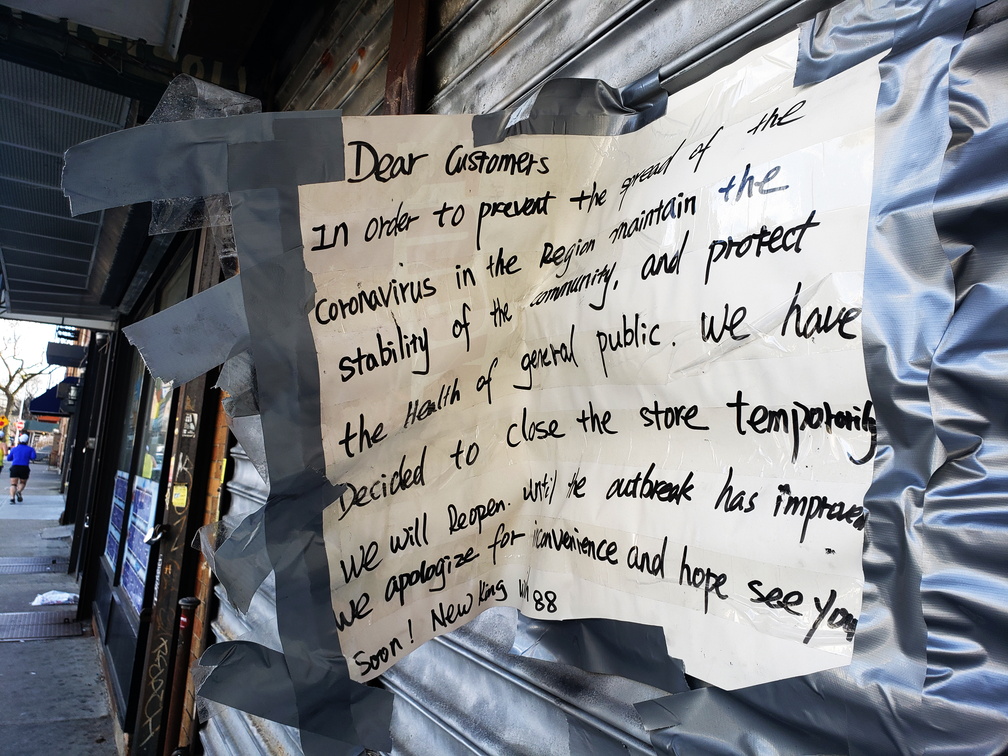 Dear Customers
In order to prevent the spread of the
Coronavirus in the Region maintain the
stability of the community, and protect
the Health of general public. We have
Decided to close the store temporarily
We will Reopen. Until the outbreak has improved
We apologize for inconvenience and hope see you
Soon! New King 88